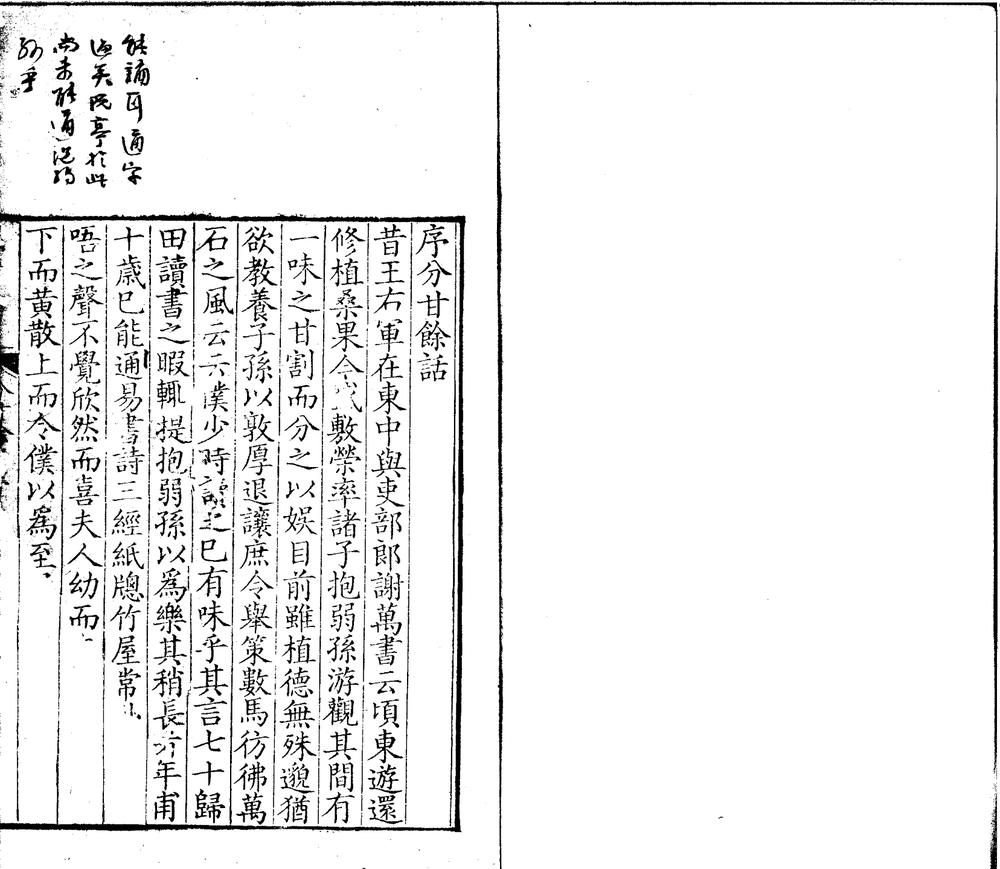 能誦耳通字
過矣阮亭於此
尚未能通況弱
孫乎
序分甘餘話
昔王右軍在東中與吏部郎謝萬書云頃東遊還
修植桑果今盛敷榮率諸子抱弱孫游觀其間有
一味之甘割而分之以娛目前雖植德無殊邈猶
欲教養子孫以敦厚退讓庶令舉策數馬彷彿萬
石之風云云僕少時讀之已有味乎其言七十歸
田讀書之暇輒提抱弱孫以爲樂其稍長者年甫
十歲已能通易書詩三經紙牕竹屋常
唔之聲不覺欣然而喜夫人幼而
下而黃散上而令僕以爲至